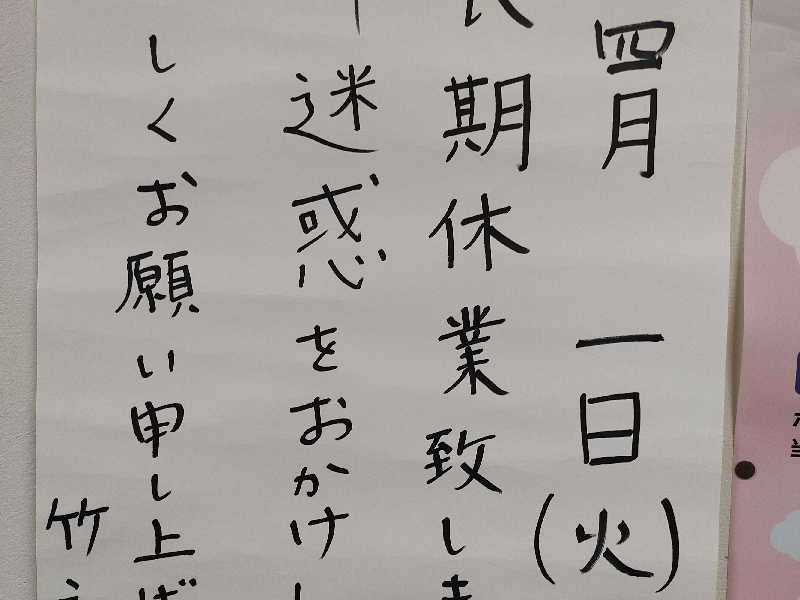 四月 一日(火)
期休業致し
迷惑をおかけ
しくお願い申し上げ
竹